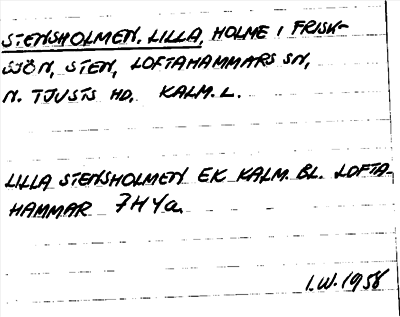 STENSHOLMEN, LILLA, HOLME I FRISK-
SJÖN, STEN, LOFTAHAMMARS SN,
N. TJUSTS HD, KALM. L.
LILLA STENSHOLMEN EK KALM. BL. LOFTA-
HAMMAR 7H4a.
I.W. 1958